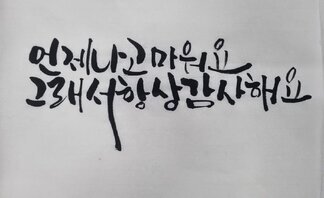 언제나고마워요
그래서항상감사해요